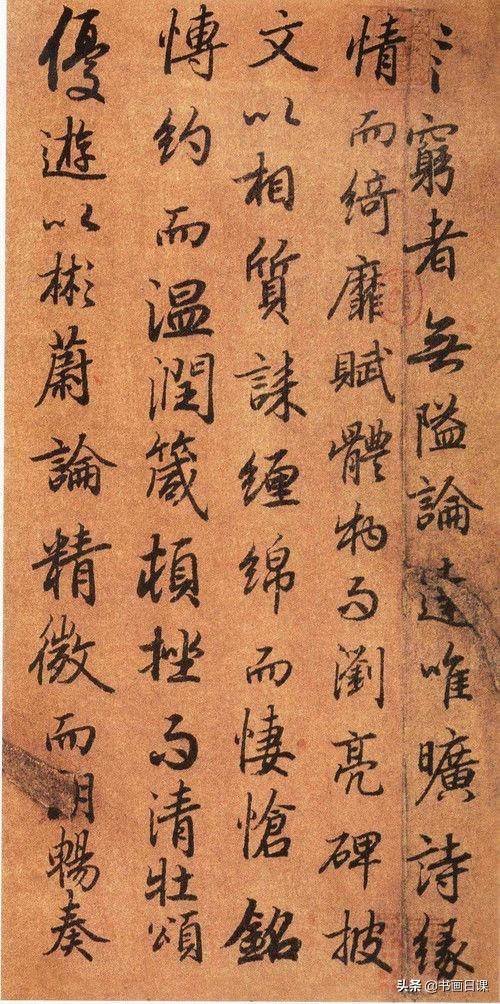 言窮者無隘論達唯曠詩緣
情而綺靡賦體物而瀏亮碑披
文以相質誄纏綿而悽愴銘
博約而温潤箴頓挫而清壯頌
優遊以彬蔚論精微而朗暢奏
头条 @书画日课